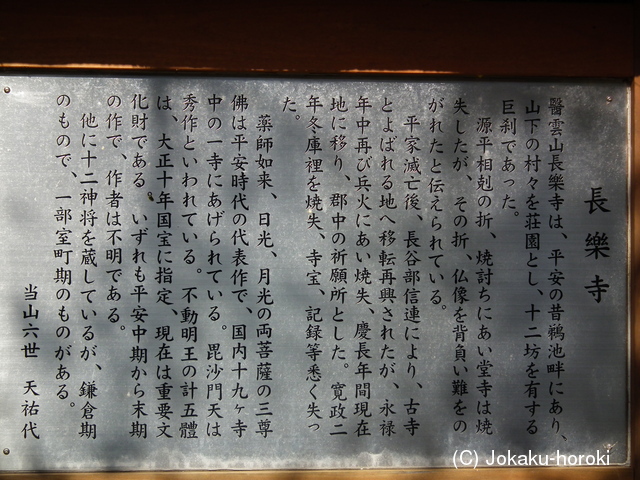 長樂寺
醫雲山長樂寺は、平安の昔鵜池畔にあり、
山下の村々を荘園とし、十二坊を有する
巨刹であった。
源平相剋の折、焼討ちにあい堂寺は焼
失したが、その折、仏像を背負い難をの
がれたと伝えられている。
平家滅亡後、長谷部信連により、古寺
とよばれる地へ移転再興されたが、永禄
年中再び兵火にあい焼失、慶長年間現在
地に移り、郡中の祈願所とした。寛政二
年冬庫裡を焼失、寺宝、記録等悉く失っ
た。
薬師如来、日光、月光の両菩薩の三尊
佛は平安時代の代表作で、国内十九ヶ寺
中の一寺にあげられている。毘沙門天は
秀作といわれている。不動明王の計五體
は、大正十年国宝に指定、現在は重要文
化財である。いずれも平安中期から末期
の作で、作者は不明である。
他に十二神将を蔵しているが、鎌倉期
のもので、一部室町期のものがある。
当山六世 天祐代
(C) Jokaku-horoki